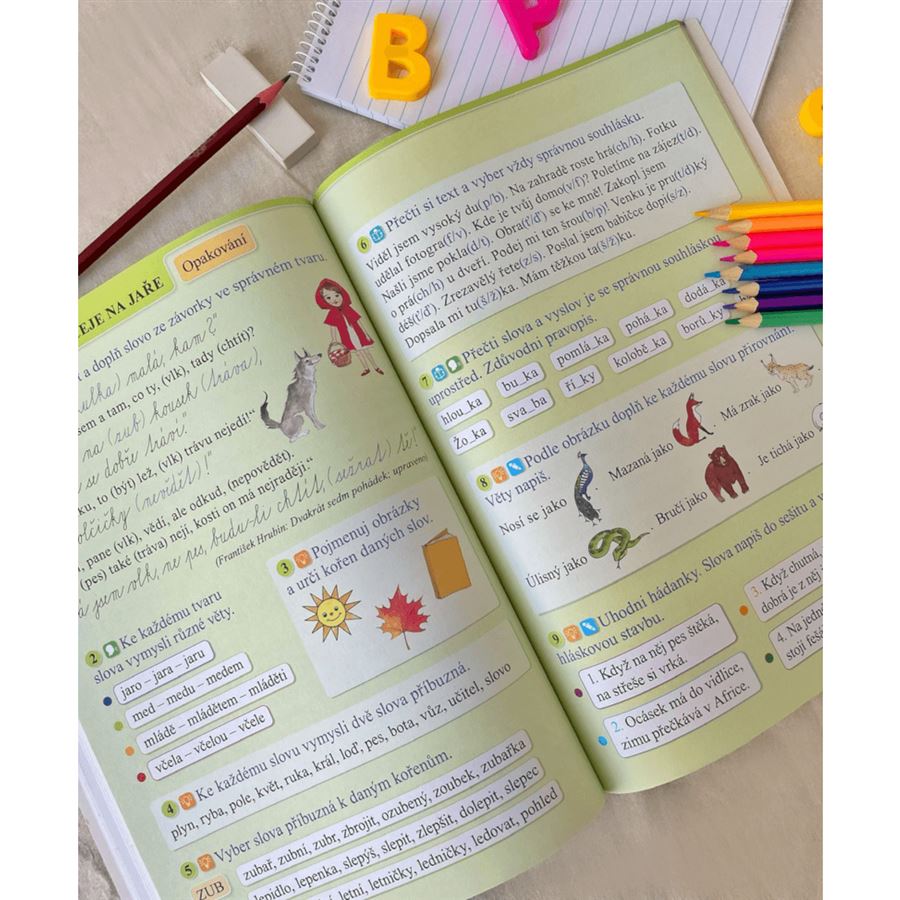 B
P
EJE NA JAŘE
Opakování
a doplň slovo ze závorky ve správném tvaru.
malá, kam?"
sem a tam, co ty, (vlk), tady (chtít)?
na (zub) kousek (tráva),
se dobře tráví."
ku, to (být) lež, (vlk) trávu nejedí!"
olčičky (nevidět)!"
, pane (vlk), vědí, ale odkud, (nepovědět).
(pes) také (tráva) nejí, kosti on má nejraději."
á jsem vlk, ne pes, budu-li chtít, (sežrat) tě!"
(František Hrubín: Dvakrát sedm pohádek, upraveno)
2 Ke každému tvaru
slova vymysli různé věty.
jaro – jara – jaru
med – medu – medem
mládě – mládětem – mláděti
včela – včelou – včele
3 Pojmenuj obrázky
a urči kořen daných slov.
4 Ke každému slovu vymysli dvě slova příbuzná.
plyn, ryba, pole, květ, ruka, král, loď, pes, bota, vůz, učitel, slovo
5 Vyber slova příbuzná k daným kořenům.
ZUB
zubař, zubní, zubr, zbrojit, ozubený, zoubek, zubařka
lepidlo, lepenka, slepýš, slepit, zlepšit, dolepit, slepec
letní, letničky, ledničky, ledovat, pohled
6 Přečti si text a vyber vždy správnou souhlásku.
Viděl jsem vysoký du(p/b). Na zahradě roste hrá(ch/h). Fotku
udělal fotogra(f/v). Kde je tvůj domo(v/f)? Poletíme na zájez(t/d).
Našli jsme pokla(d/t). Obra(ť/ď) se ke mně! Zakopl jsem
o prá(ch/h) u dveří. Podej mi ten šrou(b/p)! Venku je pru(t/d)ký
déš(ť/ď). Zrezavělý řete(z/s). Poslal jsem babičce dopi(s/z).
Dopsala mi tu(š/ž)ka. Mám těžkou ta(š/ž)ku.
7 Přečti slova a vyslov je se správnou souhláskou
uprostřed. Zdůvodni pravopis.
hlou_ka
bu_ka
pomlá_ka
pohá_ka
dodá_ka
Žo_ka
sva_ba
ří_ky
kolobě_ka
borů_ky
8 Podle obrázku doplň ke každému slovu přirovnání.
Věty napiš.
Nosí se jako . Mazaná jako . Má zrak jako
Úlisný jako . Bručí jako . Je tichá jako
9 Uhodni hádanky. Slova napiš do sešitu a v
hláskovou stavbu.
1. Když na něj pes štěká,
na střeše si vrká.
2. Ocásek má do vidlice,
zimu přečkává v Africe.
3. Když chutná,
dobrá je z něj
4. Na jedné
stojí